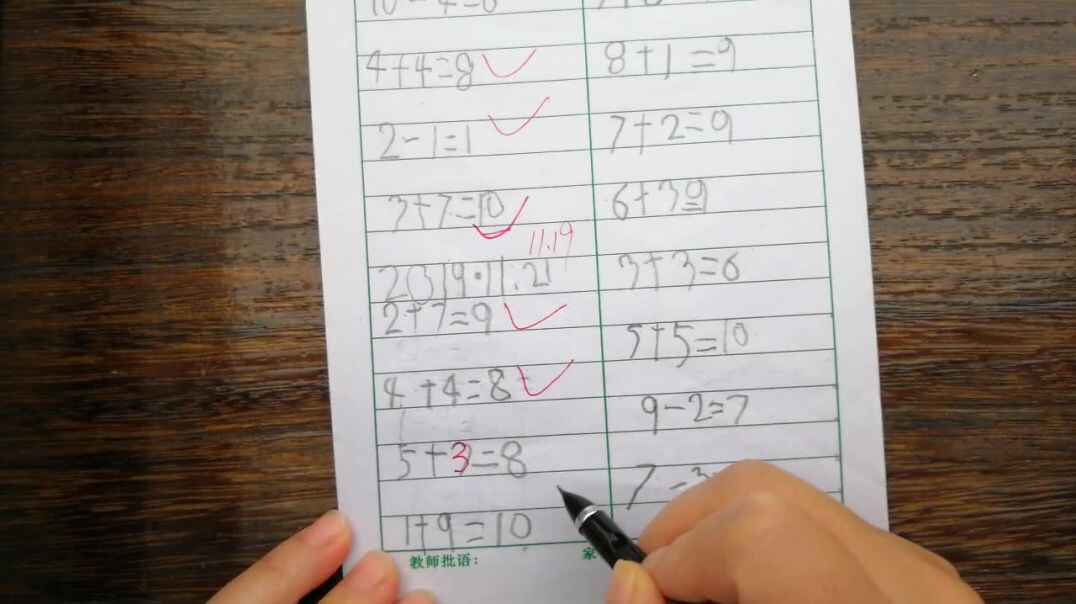 4+4=8
2-1=1
3+7=10
11.19
2019.11.21
2+7=9
4+4=8
5+3=8
1+9=10
教师批语：
8+1=9
7+2=9
6+3 9
3+3=6
5+5=10
9-2=7
家